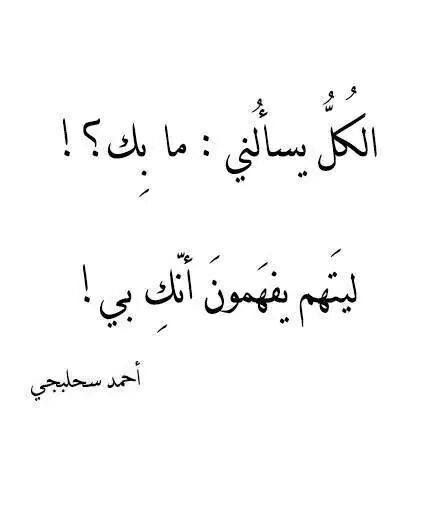 الكُلُّ يسألُني : ما بِك؟ !
ليتَهم يفهَمونَ أنّكِ بي !
أحمد سحلبجي